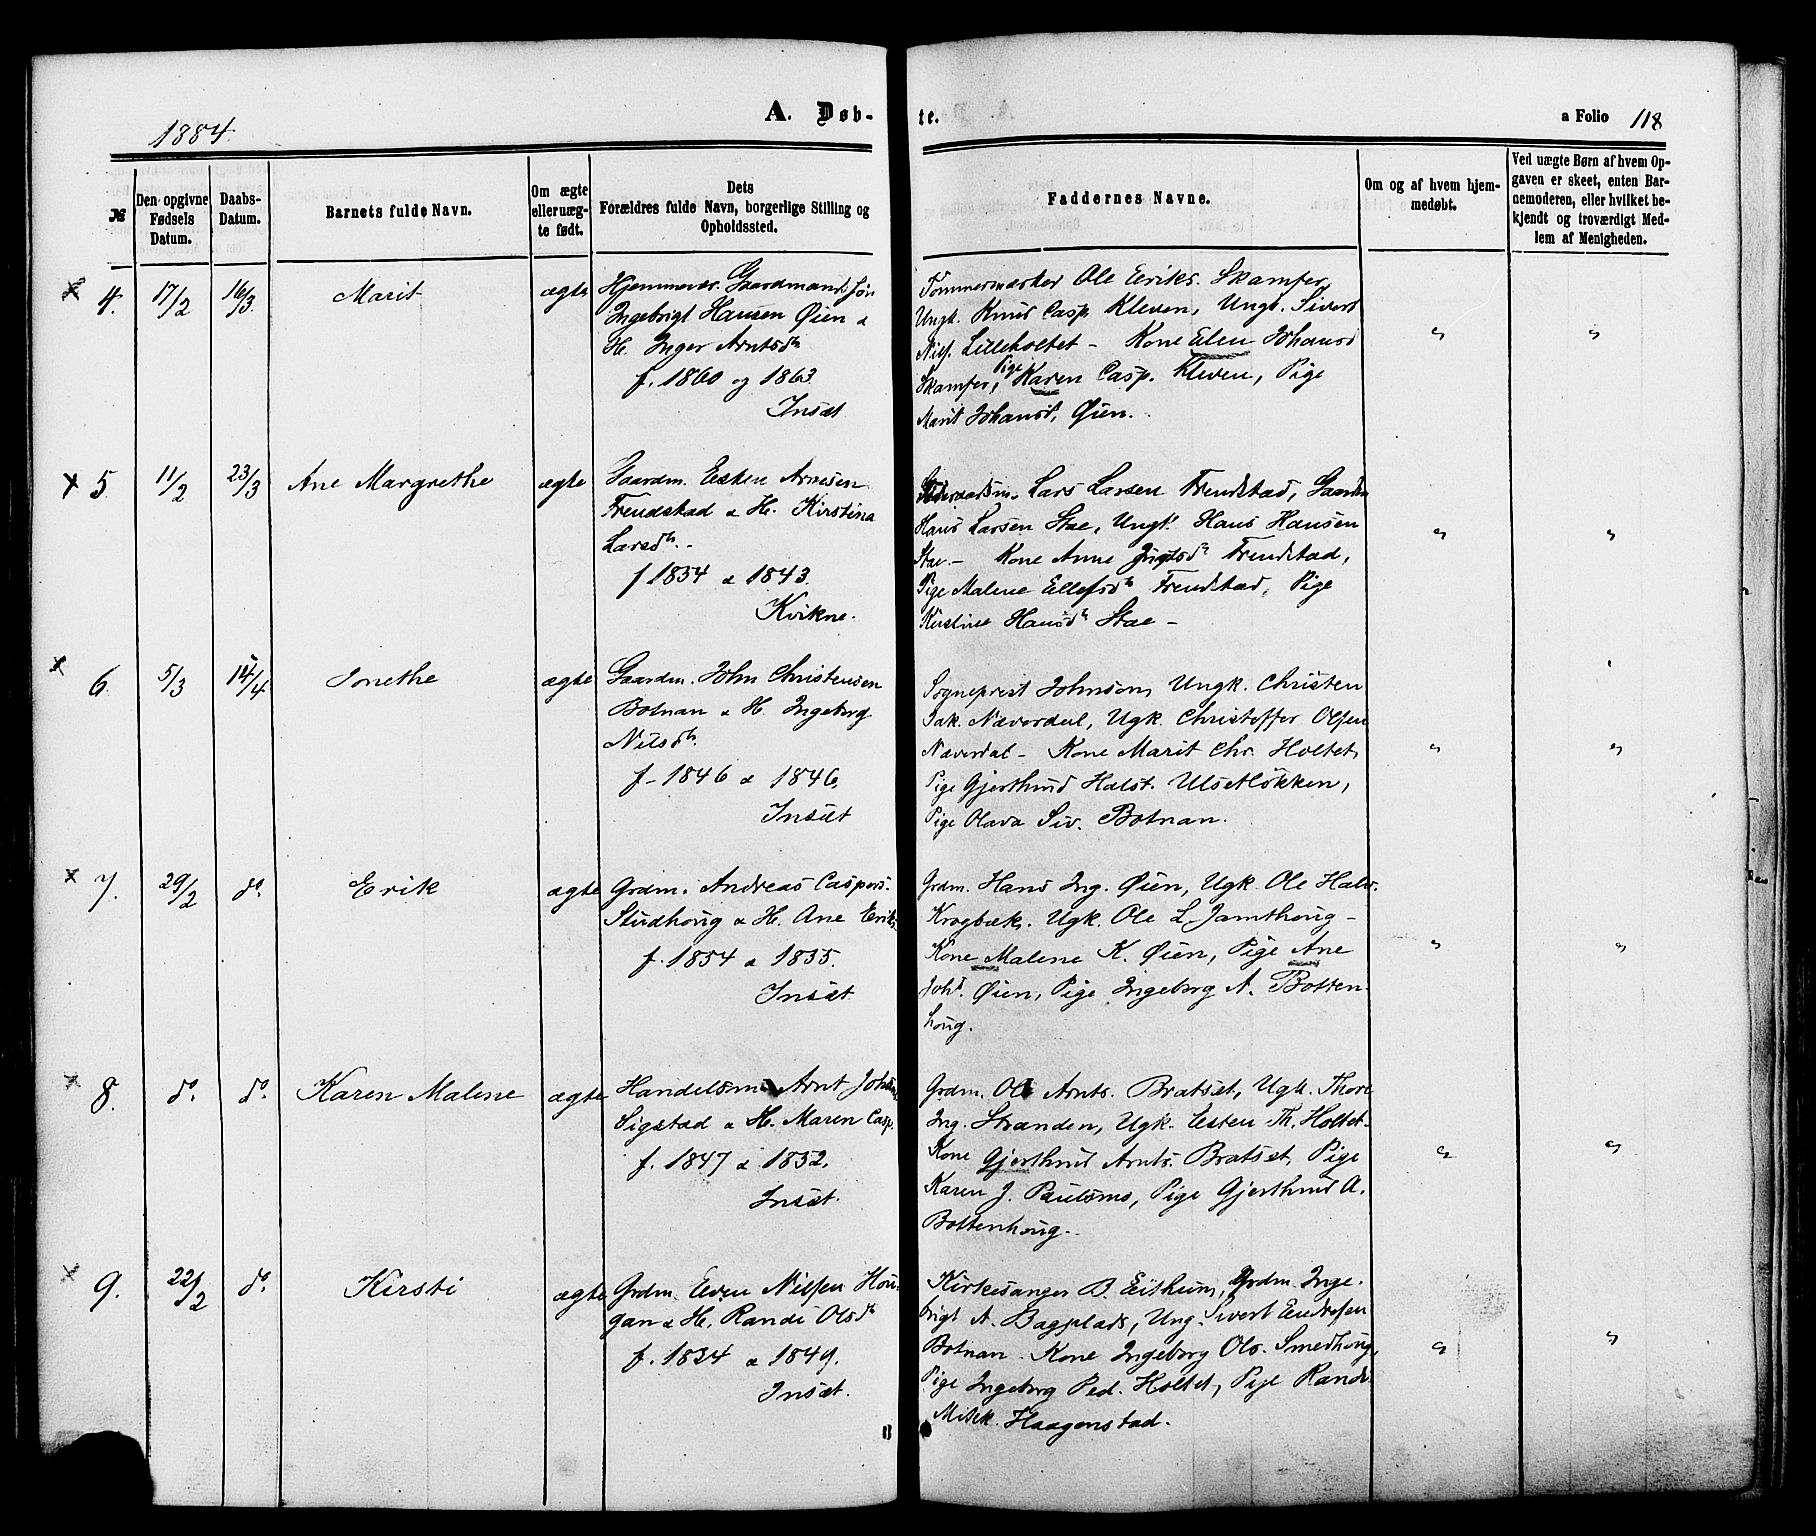 1884.
A. Døb-
te.
a Folio 118
№
Den opgivne Fødsels Datum.
Daabs-Datum.
Barnets fulde Navn.
Om ægte eller uæg-te født.
Dets Forældres fulde Navn, borgerlige Stilling og Opholdssted.
Faddernes Navne.
Om og af hvem hjem-medøbt.
Ved uægte Børn af hvem Op-gaven er skeet, enten Bar-nemoderen, eller hvilket be-kjendt og troværdigt Med-lem af Menigheden.
4. 17/2 16/3. Marit ægte
Hjemmevær. Gaardmands Søn
Ingebrigt Hansen Øien &
H. Inger Arntsdtr
f. 1860 og 1863.
Inset
Tømmermærker Ole Eriks. Skamfer,
Ungk. Knud Casp. Kleven, Ungk. Sivert
Nils. Lilleholtet - Kone Elen Johansd
Skamfer, Pige Karen Casp. Kleven, Pige
Marit Johansd, Øien.
" "
5 11/2 23/3 Ane Margrethe ægte
Gaardm. Esten Arnesen
Frendstad & H. Kirstina
Larsdtr. -
f 1834 & 1843.
Kvikne.
Lars Larsen Frendstad, Gaardm
Hans Larsen Stae, Ungk. Hans Hansen
Stae. - Kone Anne Frendstad,
Pige Malene Ellefsdtr Frendstad, Pige
Kirstine Hansdtr Stae -
" "
6. 5/3 14/4 Ingeborg ægte
Gaardm. John Christensen
Botnan & H. Ingeborg
Nilsdtr.
f - 1846 & 1846.
Inset
Sogneprest Johnson, Ungk. Christen
Jak. Næverdal, Ugk. Christoffer Olsen
Næverdal - Kone Marit Chr. Holtet,
Pige Gjerthrud Halst. Ulsetløkken,
Pige Olava Siv. Botnan.
" "
7. 29/2 do. Erik ægte
Grdm. Andreas Caspers.
Studhoug & H. Ane Eriks.
f. 1854 & 1855.
Inset
Grdm. Hans Ing. Øien, Ugk. Ole Halv.
Krogbæk. Ugk. Ole L. Jamthoug -
Kone Malene K. Øien, Pige Ane
Johs. Øien, Pige Ingeborg A. Botten-
houg.
" "
8. do. do. Karen Malene ægte
Handelsm. Arnt Johns.
Sigstad & H. Maren Casp.
f. 1847 & 1852.
Inset.
Grdm. Ole Arnts. Bratset, Ugk. Thore
Ing. Stranden, Ugk. Esten Th. Holtet-
Kone Gjerthrud Arnts. Bratset, Pige
Karen J. Paulsmo, Pige Gjerthrud A.
Bottenhoug.
" "
9. 22/2 do. Kirsti ægte
Grdm. Even Nilsen Hou-
gan & H. Randi Olsdtr
f. 1834 & 1849.
Inset.
Kirkesanger B. Eithun, Grdm. Inge-
brigt A. Bagplads, Ung. Sivert Endresen
Botnan. Kone Ingeborg Ols. Smedhoug,
Pige Ingeborg Ped. Holtet, Pige Randi
Mikk. Haagenstad.
" "